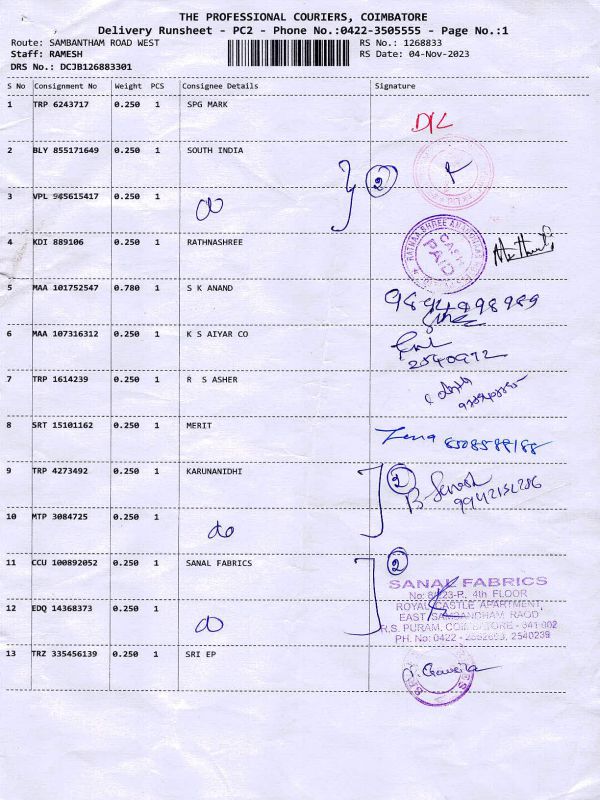 THE PROFESSIONAL COURIERS, COIMBATORE
Delivery Runsheet - PC2 - Phone No.:0422-3505555 - Page No.:1
Route: SAMBANTHAM ROAD WEST RS No.: 1268833
Staff: RAMESH RS Date: 04-Nov-2023
DRS No.: DCJB126883301
S No Consignment No Weight PCS Consignee Details Signature
1 TRP 6243717 0.250 1 SPG MARK
D/L
2 BLY 855171649 0.250 1 SOUTH INDIA
2
3 VPL 945615417 0.250 1 do
4 KDI 889106 0.250 1 RATHNASHREE
CASH PAID
5 MAA 101752547 0.780 1 S K ANAND
9894998989
6 MAA 107316312 0.250 1 K S AIYAR CO
2540972
7 TRP 1614239 0.250 1 R S ASHER
8 SRT 15101162 0.250 1 MERIT
9 TRP 4273492 0.250 1 KARUNANIDHI
2
10 MTP 3084725 0.250 1 do
11 CCU 100892052 0.250 1 SANAL FABRICS
2
SANAL FABRICS
4th FLOOR
ROYAL CASTLE APARTMENT,
EAST SAMBANDHAM RAOD
R.S. PURAM, COIMBATORE - 641 002
PH. No: 0422 - 2540239
12 EDQ 14368373 0.250 1 do
13 TRZ 335456139 0.250 1 SRI EP